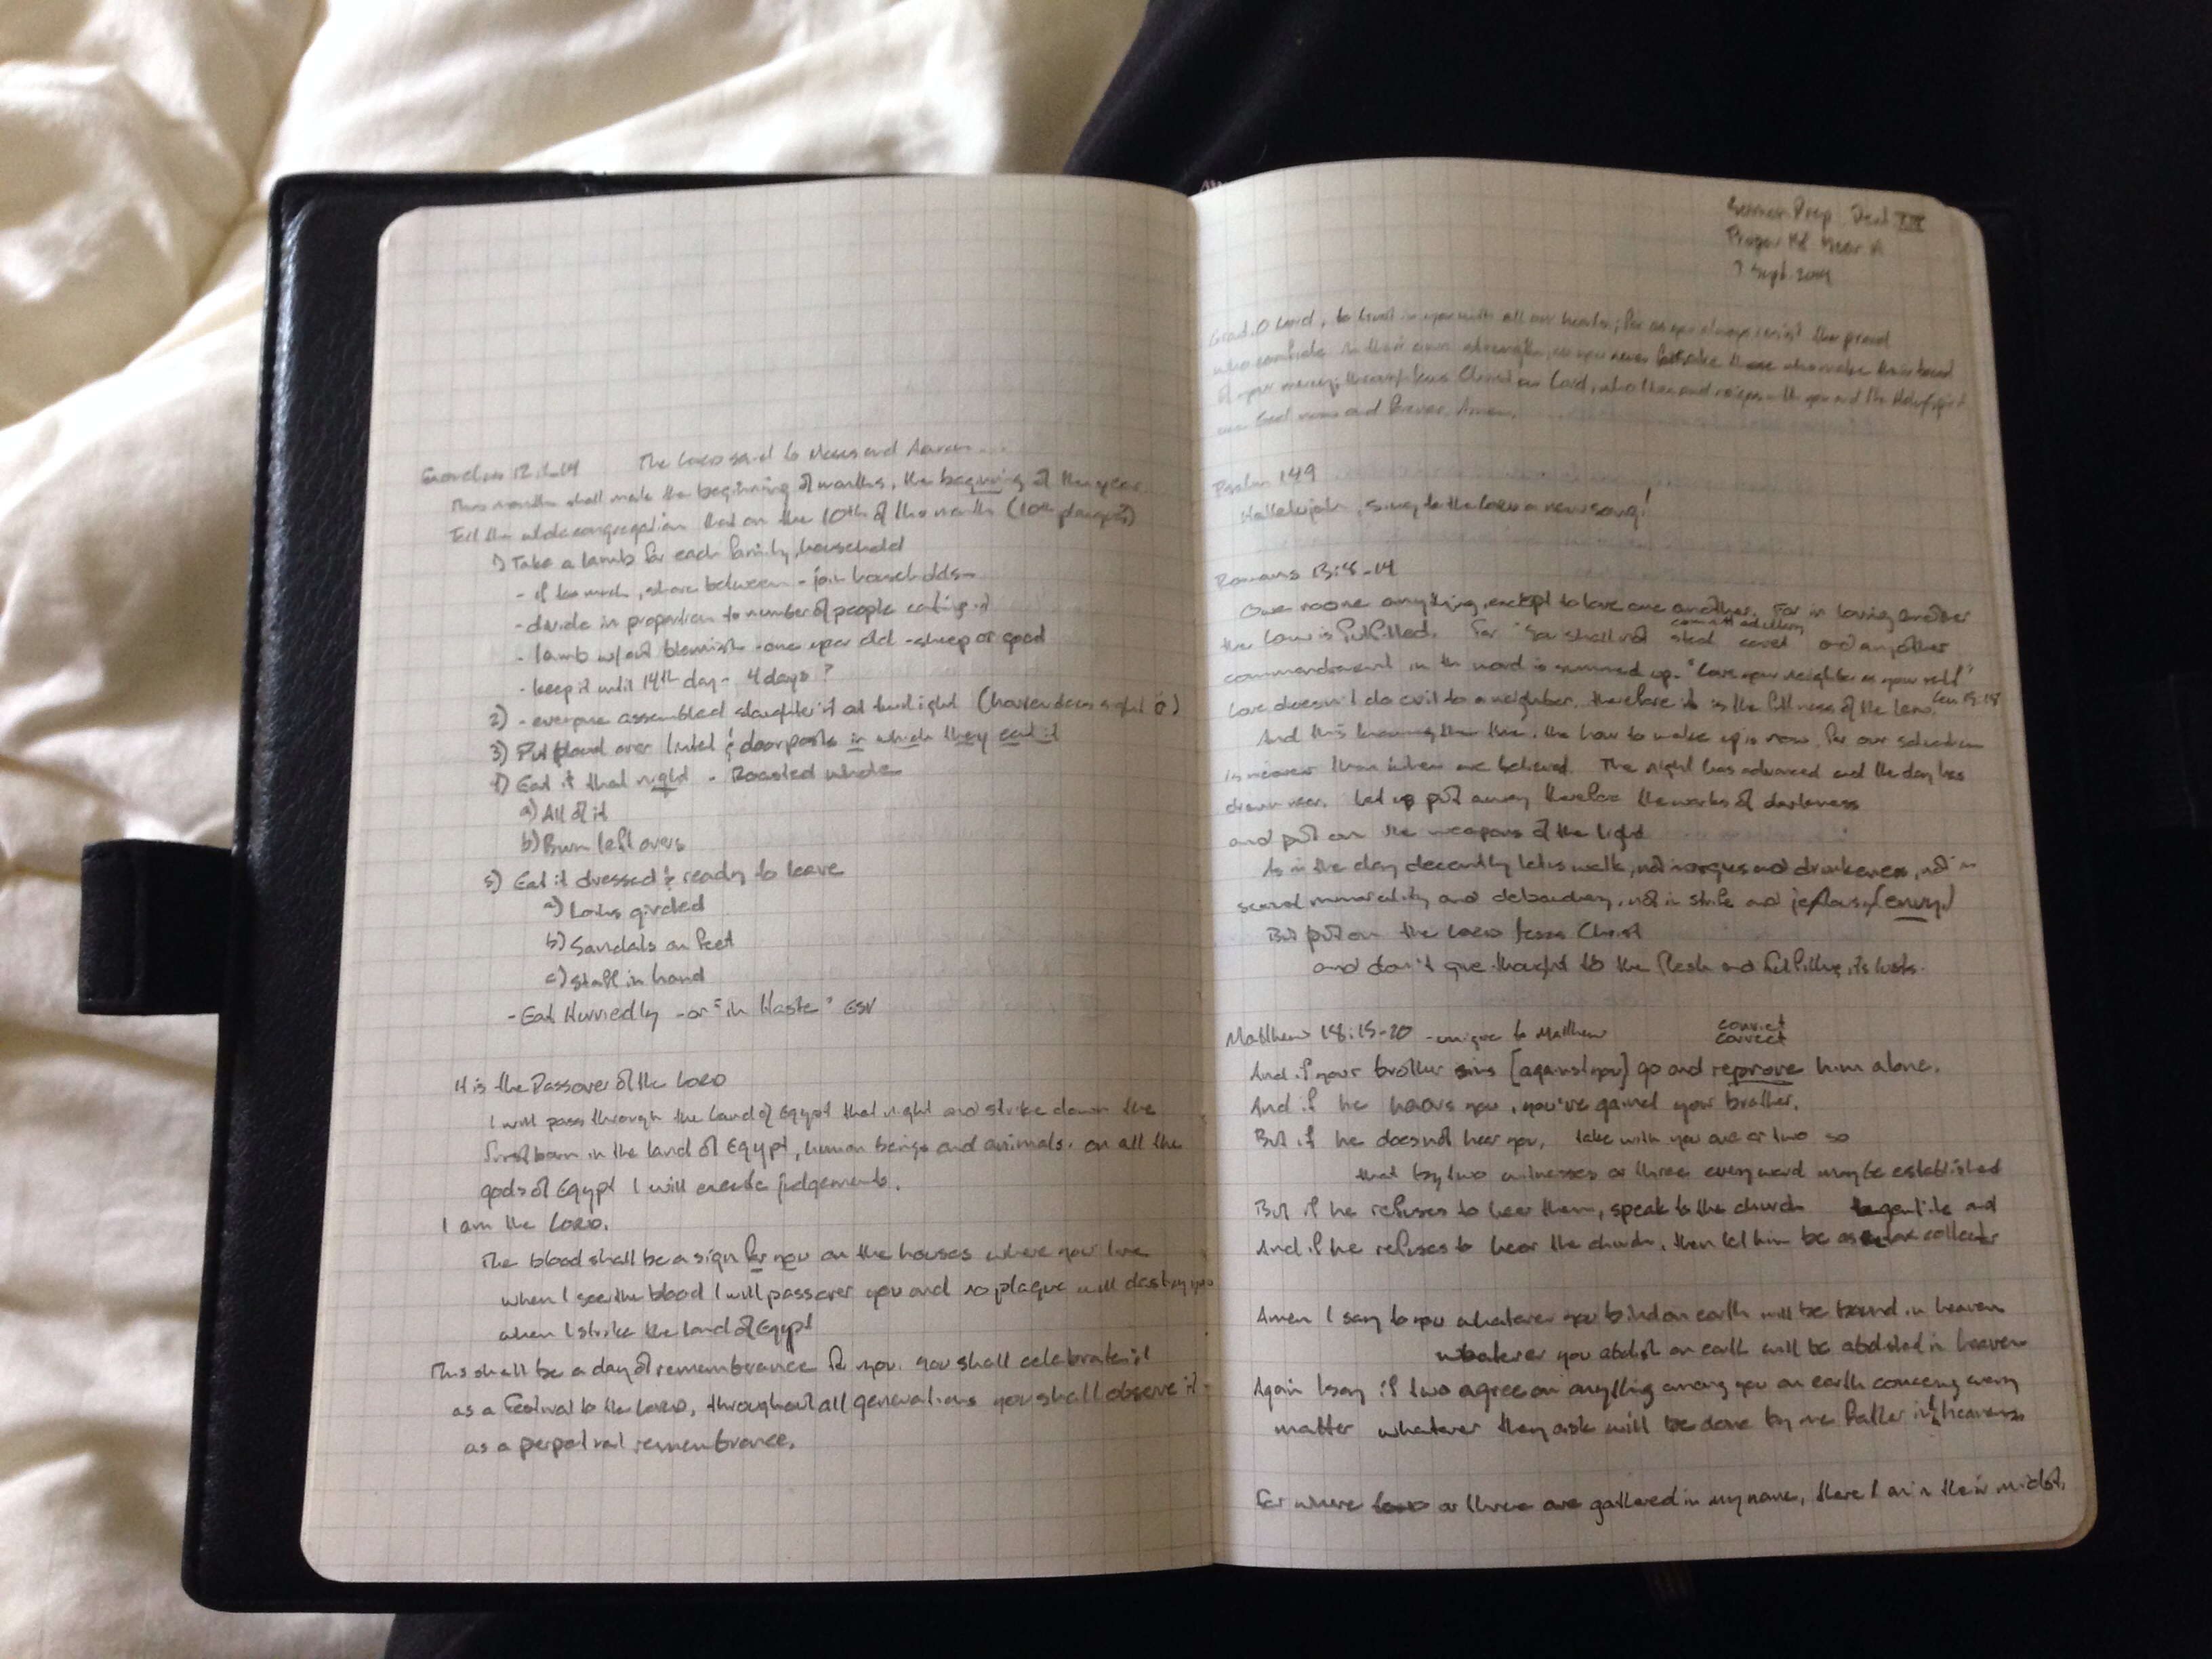 Exodus 12:1-14 The LORD said to Moses and Aaron...
This month shall mark the beginning of months, the beginning of the year
Tell the whole congregation that on the 10th of the month (10th plague?)
1) Take a lamb for each family, household
- if too much, share between - join households -
- divide in proportion to number of people eating it
- lamb w/out blemish - one year old - sheep or goad
- keep it until 14th day - 4 days?
2) - everyone assembled slaughter it at twilight
3) Put blood over lintel & doorposts in which they eat it
4) Eat it that night - Roasted whole
a) All of it
b) Burn left overs
5) Eat it dressed & ready to leave
a) Loins girded
b) Sandals on feet
c) Staff in hand
- Eat Hurriedly - or "in Haste" ESV
It is the Passover of the LORD
I will pass through the land of Egypt that night and strike down the
first born in the land of Egypt, human beings and animals. on all the
gods of Egypt I will execute judgements.
I am the LORD.
The blood shall be a sign for you on the houses where you live
when I see the blood I will passover you and no plague will destroy you
when I strike the land of Egypt
This shall be a day of remembrance for you. you shall celebrate it
as a festival to the LORD, throughout all generations you shall observe it -
as a perpetual remembrance.
Sermon Prep
Proper Year A
7 Sept 2014
Grant, O Lord, to trust in you with all our hearts; for as you always resist the proud
who confide in their own strength, so you never forsake those who make their boast
of your mercy; through Jesus Christ our Lord, who lives and reigns with you and the Holy Spirit
one God now and forever. Amen.
Psalm 149
Hallelujah, sing to the LORD a new song!
Romans 13:8-14
Owe no one anything, except to love one another. For in loving another
the Law is fulfilled. For "You shall not commit adultery steal covet and any other
commandment in the word is summed up. "Love your neighbor as your self"
Love doesn't do evil to a neighbor. therefore it is the fullness of the law. Lev 19:18
And this knowing the time, the hour to wake up is now, for our salvation
is nearer than when we believed. The night has advanced and the day has
drawn near. Let us put away therefore the works of darkness
and put on the weapons of the light
As in the day decently let us walk, not in orgies and drunkenness, not in
sexual immorality and debauchery, not in strife and jealousy (envy)
But put on the LORD Jesus Christ
and don't give thought to the flesh and fulfilling its lusts.
Matthew 18:15-20 - unique to Matthew
convict
correct
And if your brother sins [against you] go and reprove him alone.
And if he hears you, you've gained your brother.
But if he does not hear you, take with you one or two so
that by two witnesses or three every word may be established
But if he refuses to hear them, speak to the church
And if he refuses to hear the church, then let him be as gentile and tax collector
Amen I say to you whatever you bind on earth will be bound in heaven
whatever you abolish on earth will be abolished in heaven
Again I say if two agree on anything among you on earth concerning every
matter whatever they ask will be done by my father in heavens
For where two or three are gathered in my name, there I am in their midst.